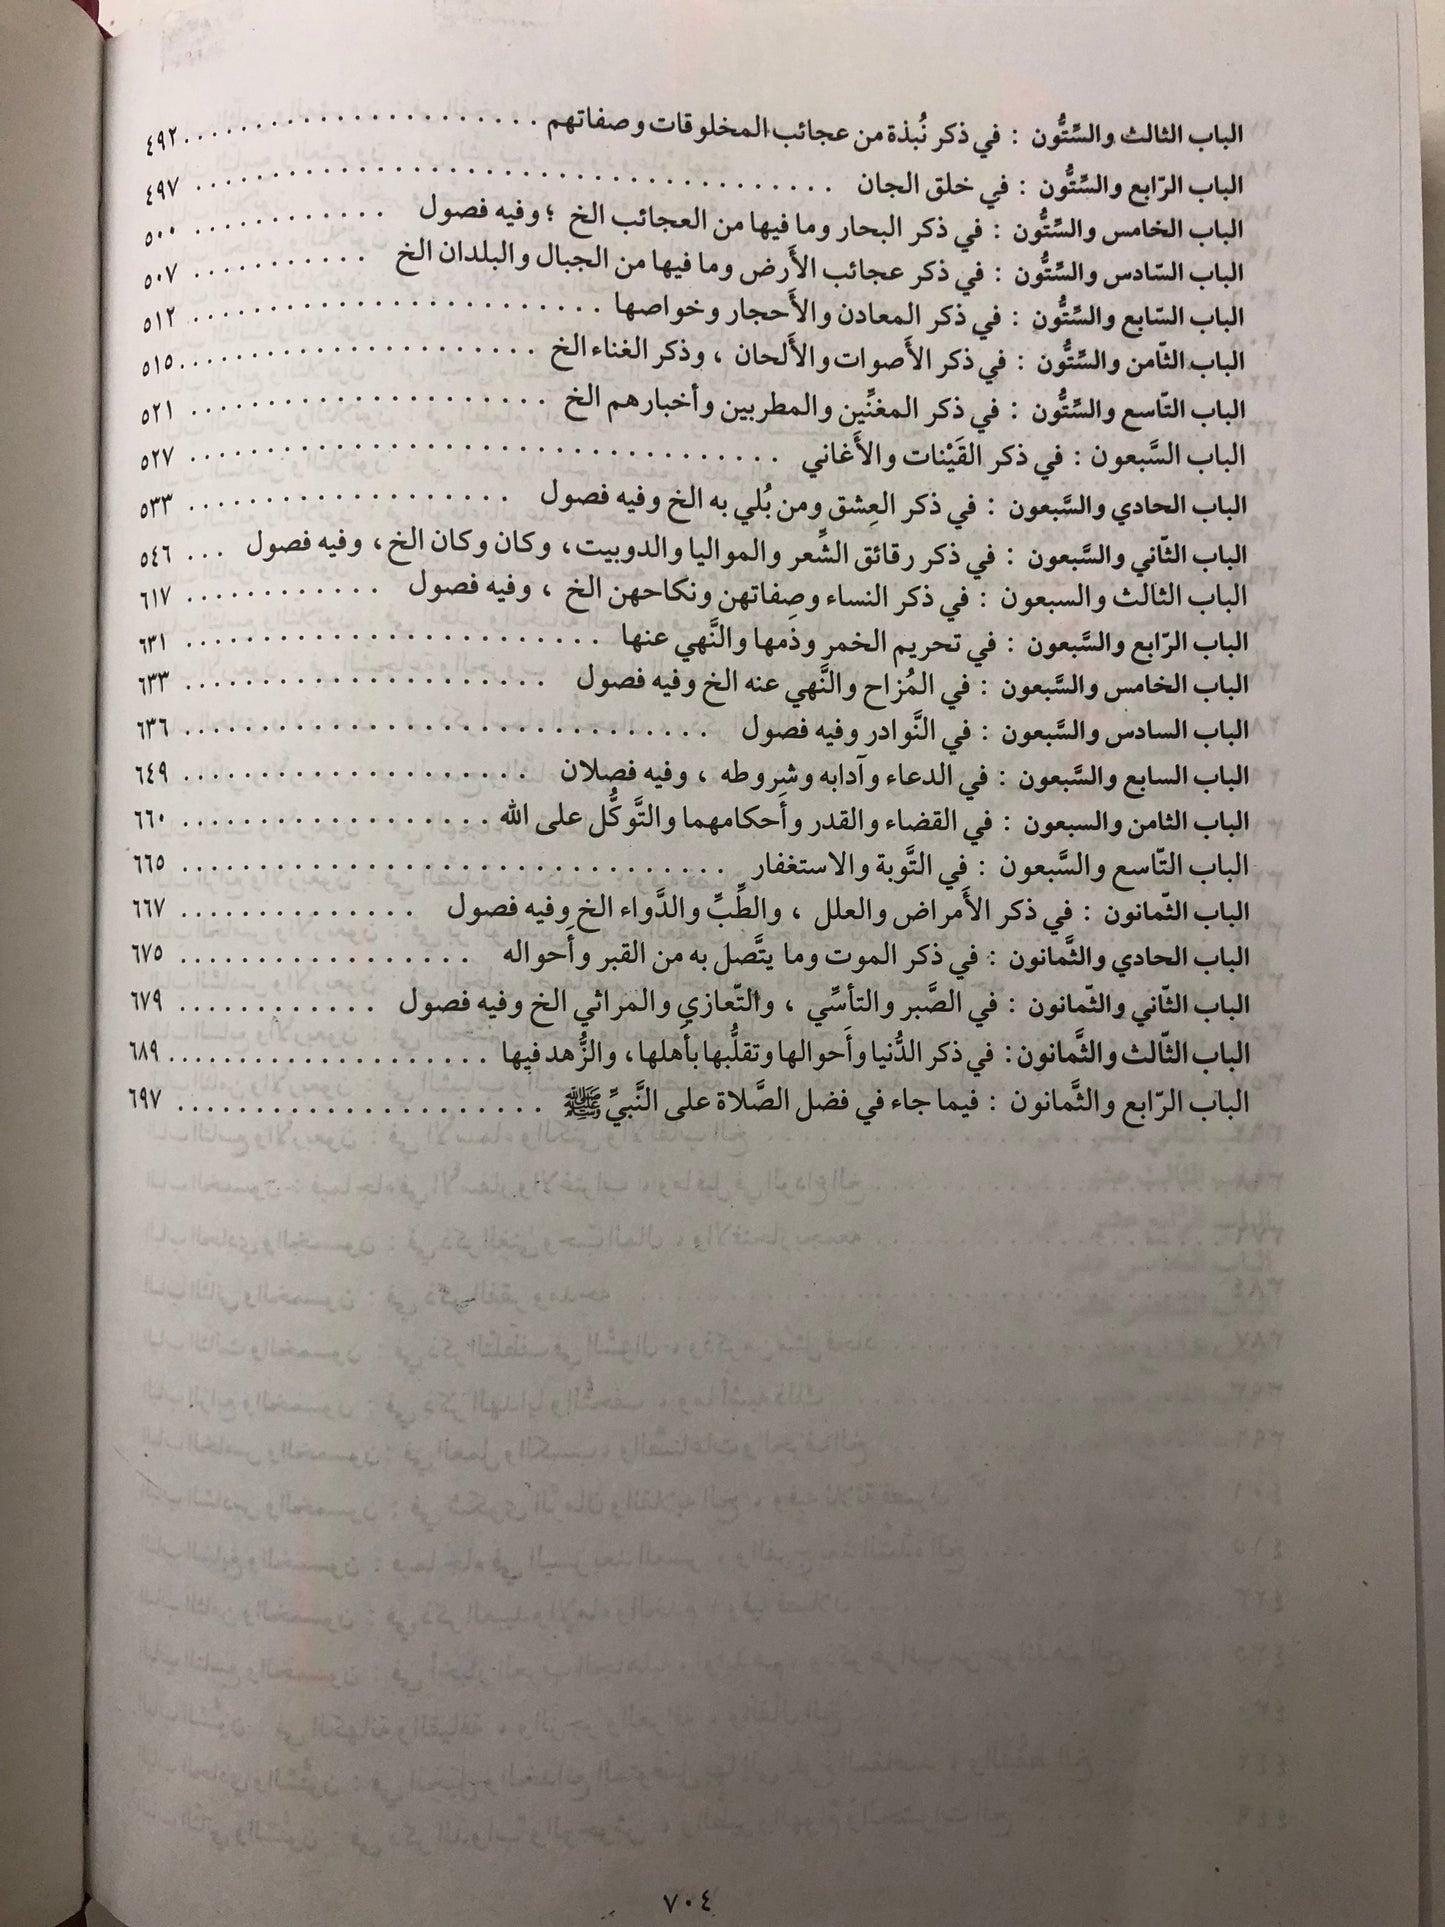 الباب الثالث والسِّتُّون : في ذكر نُبذة من عجائب المخلوقات وصفاتهم . . . . . . . . . . . . . . . . . . . . ٤٩٢
الباب الرّابع والسِّتُّون : في خلق الجان . . . . . . . . . . . . . . . . . . . . ٤٩٧
الباب الخامس والسِّتُّون : في ذكر البحار وما فيها من العجائب الخ ؛ وفيه فصول . . . . . . . . . . ٥٠٠
الباب السّادس والسِّتُّون : في ذكر عجائب الأَرض وما فيها من الجبال والبلدان الخ . . . . . . . . . . ٥٠٧
الباب السّابع والسِّتُّون : في ذكر المعادن والأَحجار وخواصها . . . . . . . . . . . . . . . . . . . . ٥١٢
الباب الثّامن والسِّتُّون : في ذكر الأَصوات والأَلحان ، وذكر الغناء الخ . . . . . . . . . . . . . . . . . . . . ٥١٥
الباب التّاسع والسِّتُّون : في ذكر المغنِّين والمطربين وأخبارهم الخ . . . . . . . . . . . . . . . . . . . . ٥٢١
الباب السَّبعون : في ذكر القَيْنات والأَغاني . . . . . . . . . . . . . . . . . . . . ٥٢٧
الباب الحادي والسَّبعون : في ذكر العِشق ومن بُلي به الخ وفيه فصول . . . . . . . . . . . . . . . . . . ٥٣٣
الباب الثّاني والسَّبعون : في ذكر رقائق الشِّعر والمواليا والدوبيت، وكان وكان الخ، وفيه فصول . . . ٥٤٦
الباب الثالث والسبعون : في ذكر النساء وصِفاتهن ونكاحهن الخ ، وفيه فصول . . . . . . . . . . . . ٦١٧
الباب الرّابع والسَّبعون : في تحريم الخمر وذمها والنَّهي عنها . . . . . . . . . . . . . . . . . . . . ٦٣١
الباب الخامس والسَّبعون : في المُزاح والنَّهي عنه الخ وفيه فصول . . . . . . . . . . . . . . . . . . . . ٦٣٣
الباب السادس والسَّبعون : في النَّوادر وفيه فصول . . . . . . . . . . . . . . . . . . . . ٦٣٦
الباب السابع والسَّبعون : في الدعاء وآدابه وشروطه ، وفيه فصلان . . . . . . . . . . . . . . . . . . . . ٦٤٩
الباب الثامن والسبعون : في القضاء والقدر وأَحكامهما والتَّوكُّل على الله . . . . . . . . . . . . . . . . . . ٦٦٠
الباب التّاسع والسَّبعون : في التَّوبة والاستغفار . . . . . . . . . . . . . . . . . . . . ٦٦٥
الباب الثمانون : في ذكر الأَمراض والعلل ، والطِّبِّ والدَّواء الخ وفيه فصول . . . . . . . . . . . . . . ٦٦٧
الباب الحادي والثَّمانون : في ذكر الموت وما يتَّصل به من القبر وأَحواله . . . . . . . . . . . . . . . . . . ٦٧٥
الباب الثّاني والثّمانون : في الصَّبر والتأسِّي ، والتّعازي والمراثي الخ وفيه فصول . . . . . . . . . . . . ٦٧٩
الباب الثّالث والثَّمانون : في ذكر الدُّنيا وأَحوالها وتقلُّبها بأَهلها، والزُّهد فيها . . . . . . . . . . . . . . . . . . ٦٨٩
الباب الرّابع والثَّمانون : فيما جاء في فضل الصَّلاة على النَّبيِّ ﷺ . . . . . . . . . . . . . . . . . . . . ٦٩٧
٧٠٤